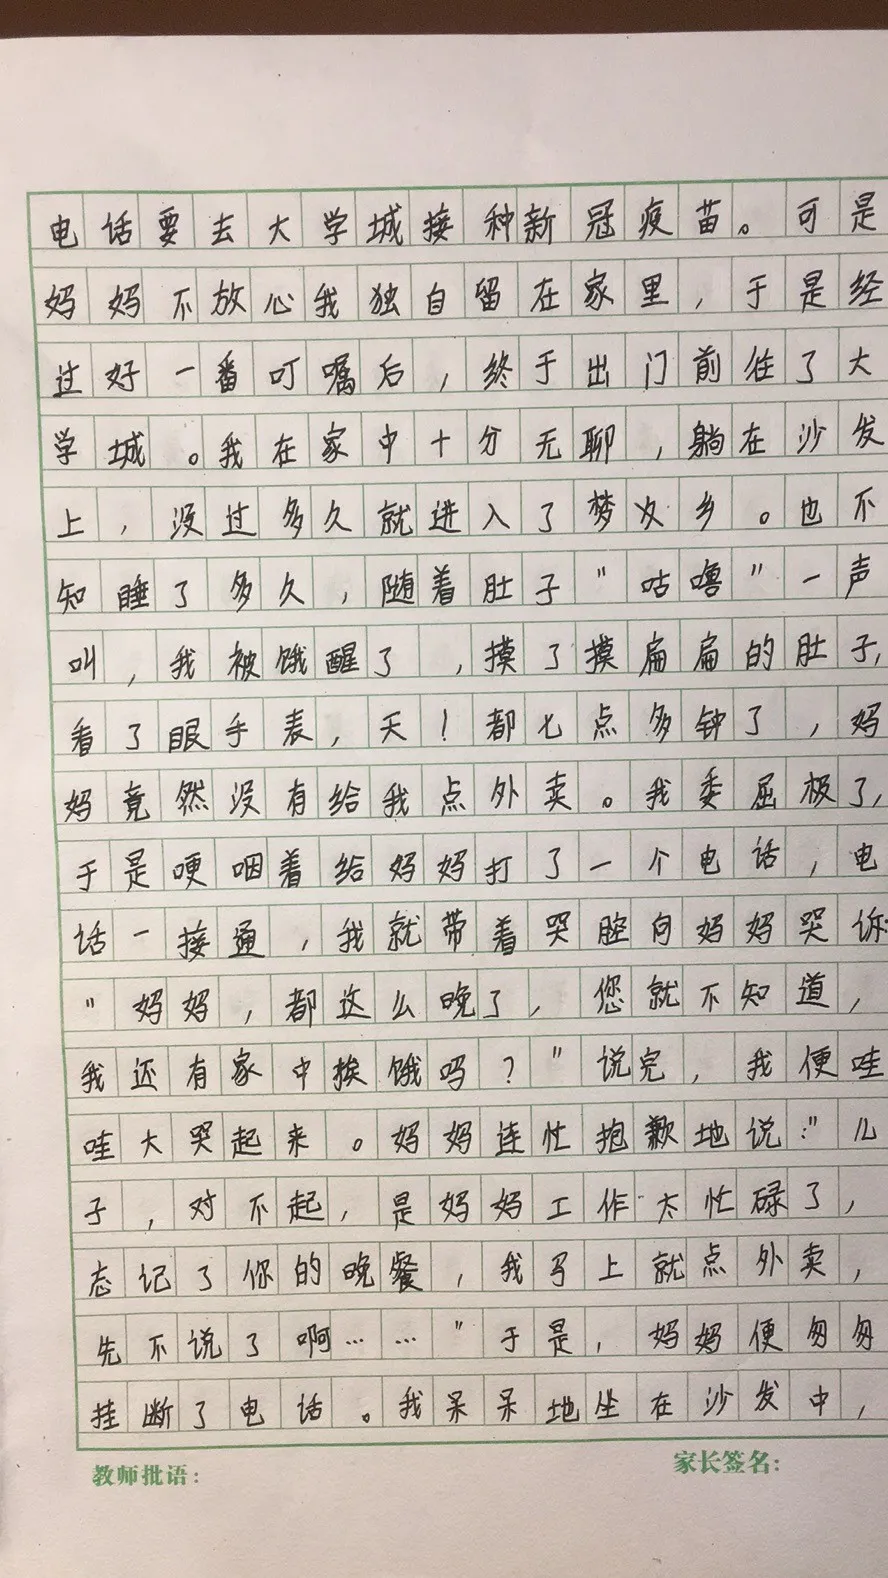 电话要去大学城接种新冠疫苗。可是
妈妈不放心我独自留在家里，于是经
过好一番叮嘱后，终于出门前往了大
学城。我在家中十分无聊，躺在沙发
上，没过多久就进入了梦乡。也不
知睡了多久，随着肚子"咕噜"一声
叫，我被饿醒了，摸了摸扁扁的肚子，
看了眼手表，天！都七点多钟了，妈
妈竟然没有给我点外卖。我委屈极了，
于是哽咽着给妈妈打了一个电话，电
话一接通，我就带着哭腔向妈妈哭诉：
"妈妈，都这么晚了，您就不知道，
我还有家中挨饿吗？"说完，我便哇
哇大哭起来。妈妈连忙抱歉地说："儿
子，对不起，是妈妈工作太忙碌了，
忘记了你的晚餐，我马上就点外卖，
先不说了啊……"于是，妈妈便匆匆
挂断了电话。我呆呆地坐在沙发中，
教师批语：
家长签名：